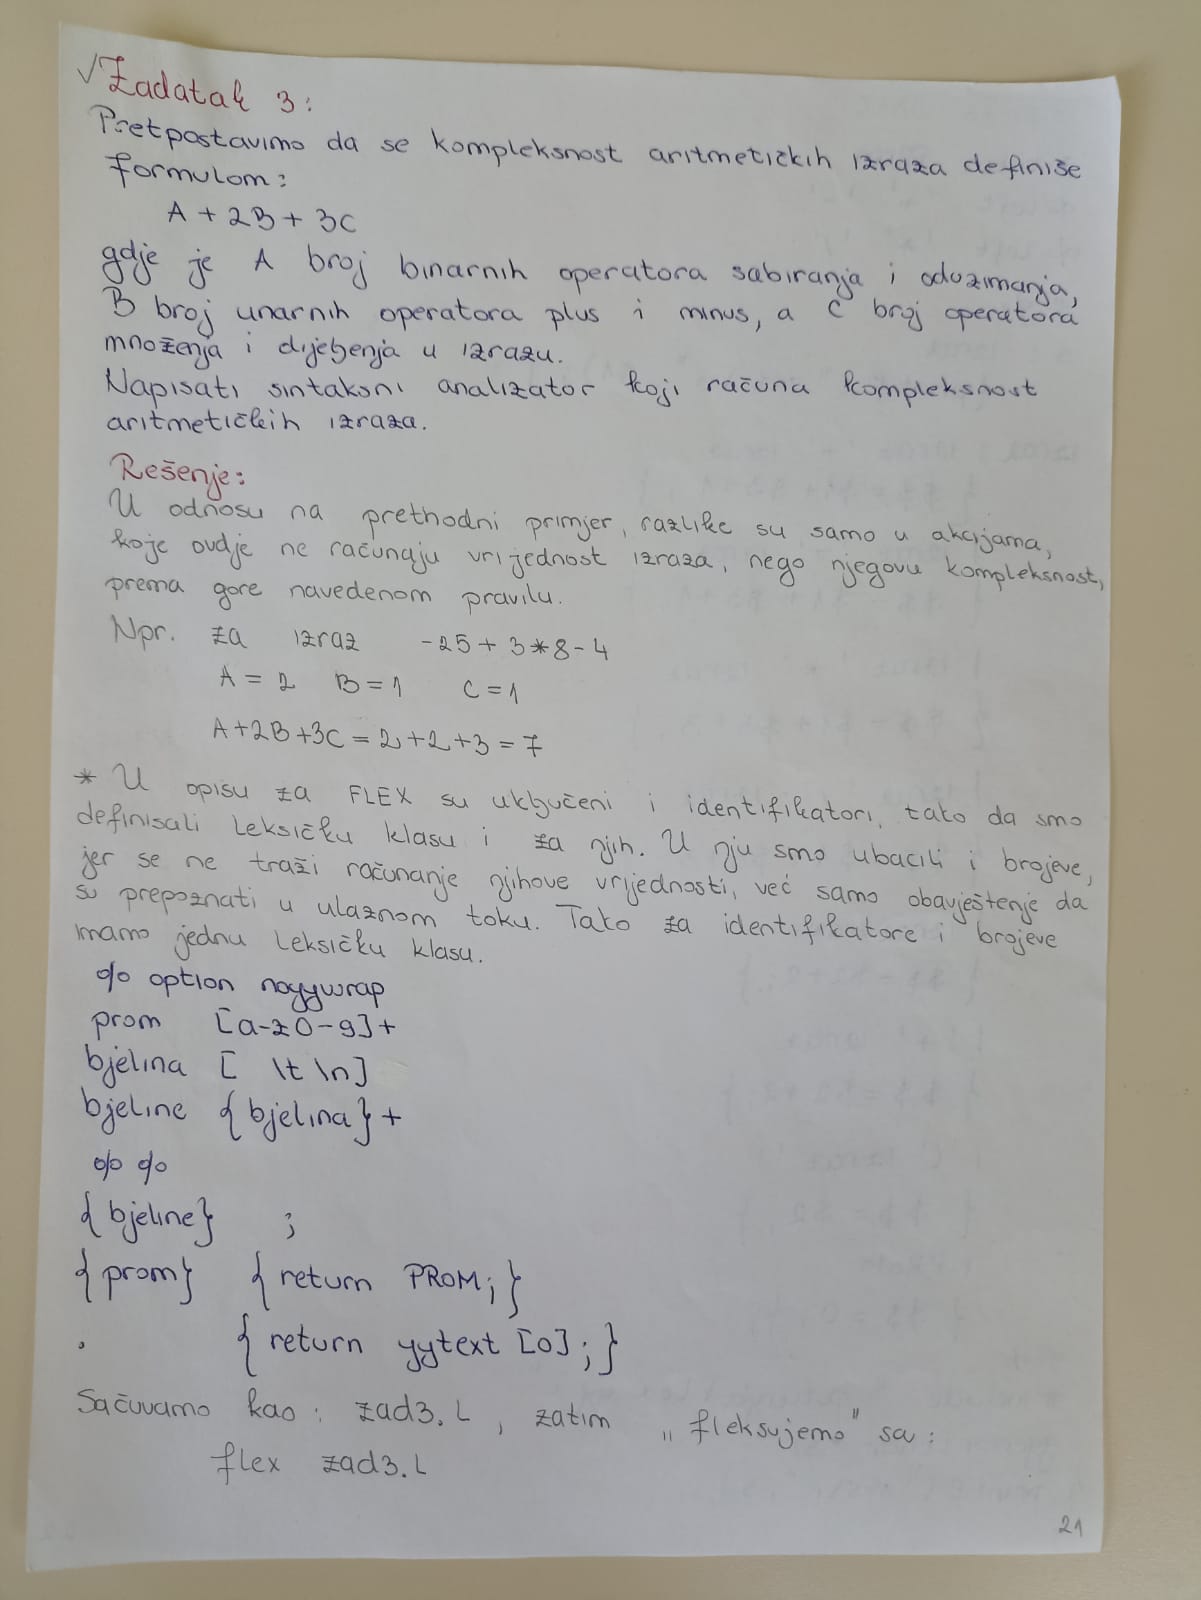 √Zadatak 3:
Pretpostavimo da se kompleksnost aritmetičkih izraza definiše
formulom:
A + 2B + 3C
gdje je A broj binarnih operatora sabiranja i oduzimanja,
B broj unarnih operatora plus i minus, a C broj operatora
množenja i dijeljenja u izrazu.
Napisati sintaksni analizator koji računa kompleksnost
aritmetičkih izraza.
Rešenje:
U odnosu na prethodni primjer, razlike su samo u akcijama,
koje ovdje ne računaju vrijednost izraza, nego njegovu kompleksnost,
prema gore navedenom pravilu.
Npr. za izraz -25 + 3*8-4
A = 2 B = 1 C = 1
A+2B+3C = 2+2+3 = 7
* U opisu za FLEX su uključeni i identifikatori, tako da smo
definisali leksičku klasu i za njih. U nju smo ubacili i brojeve,
jer se ne traži računanje njihove vrijednosti, već samo obavještenje da
su prepoznati u ulaznom toku. Tako za identifikatore i brojeve
imamo jednu leksičku klasu.
% option noyywrap
prom [a-z0-9]+
bjelina [ \t \n]
bjeline {bjelina}+
% %
{bjeline} ;
{prom} {return PROM;}
. {return yytext [0];}
Sačuvamo kao: zad3.l, zatim „fleksujemo" sa:
flex zad3.l
21